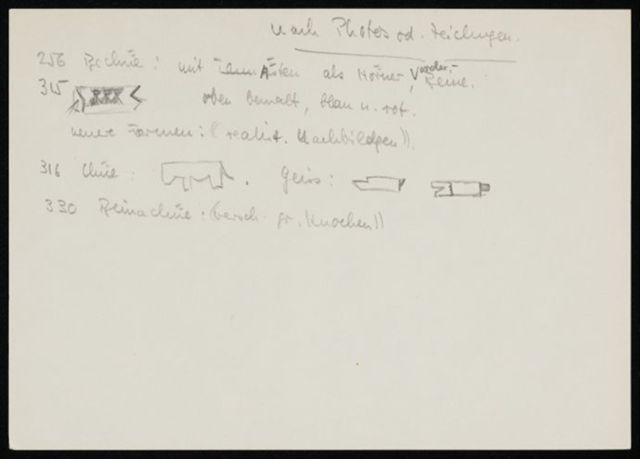 nach Photos od. Zeichngen.
256 Bechüe : mit Ästen als Hörner, Vorder-Beine.
315 oben bemalt, blau u. rot.
neuere Formen : (realist. Nachbildgen)).
316 Chüe : . Geiss :
330 Beinachüe : (versch. gr. Knochen))